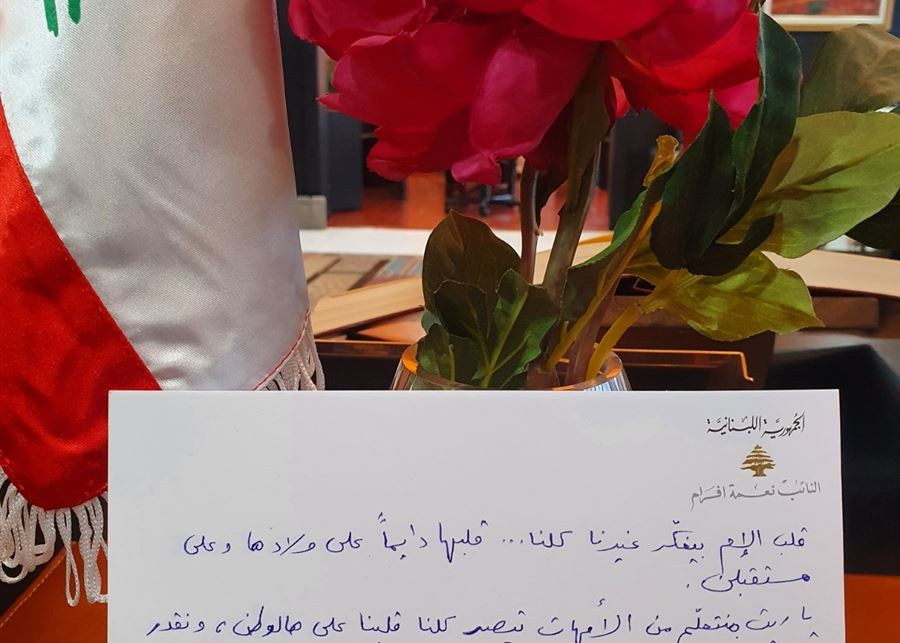 الجُمهوريَّة اللبْنانيَّة
النائب نعمة افرام
قلب الإم بيفكّر غيرنا كلنا... قلبها دايماً على ولادها وعلى
مستقبلن.
يا ريت منتعلّم من الأمهات تيصير كلنا قلبنا على هالوطن، ونقدر